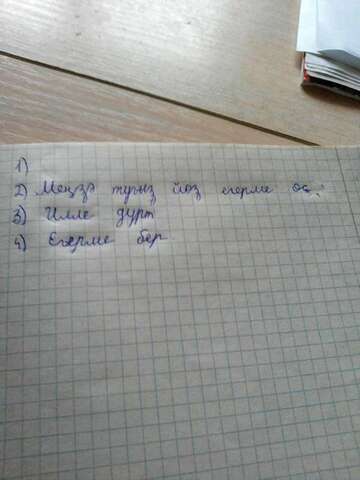 1)
2) Меңдә тугыз йөз егерме өс.
3) Илле дүрт
4) Егерме бер